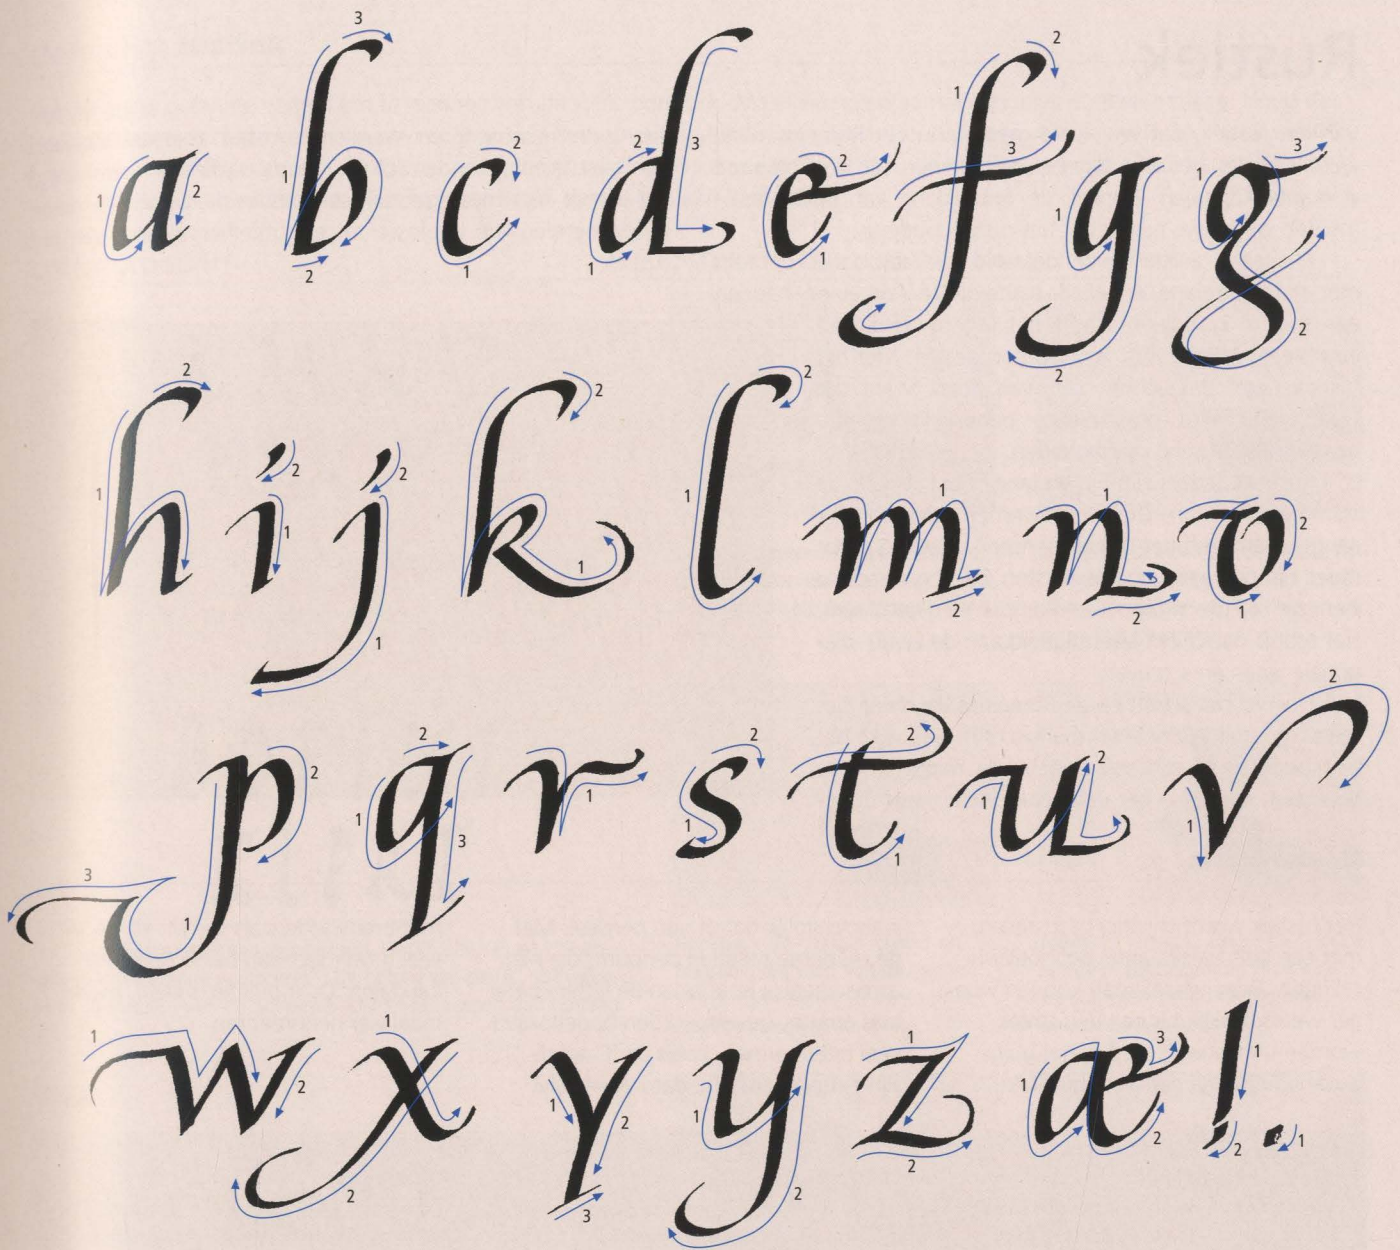 a b c d e f g g
h i j k l m n o
p q r s t u v
w x y y z æ ! .